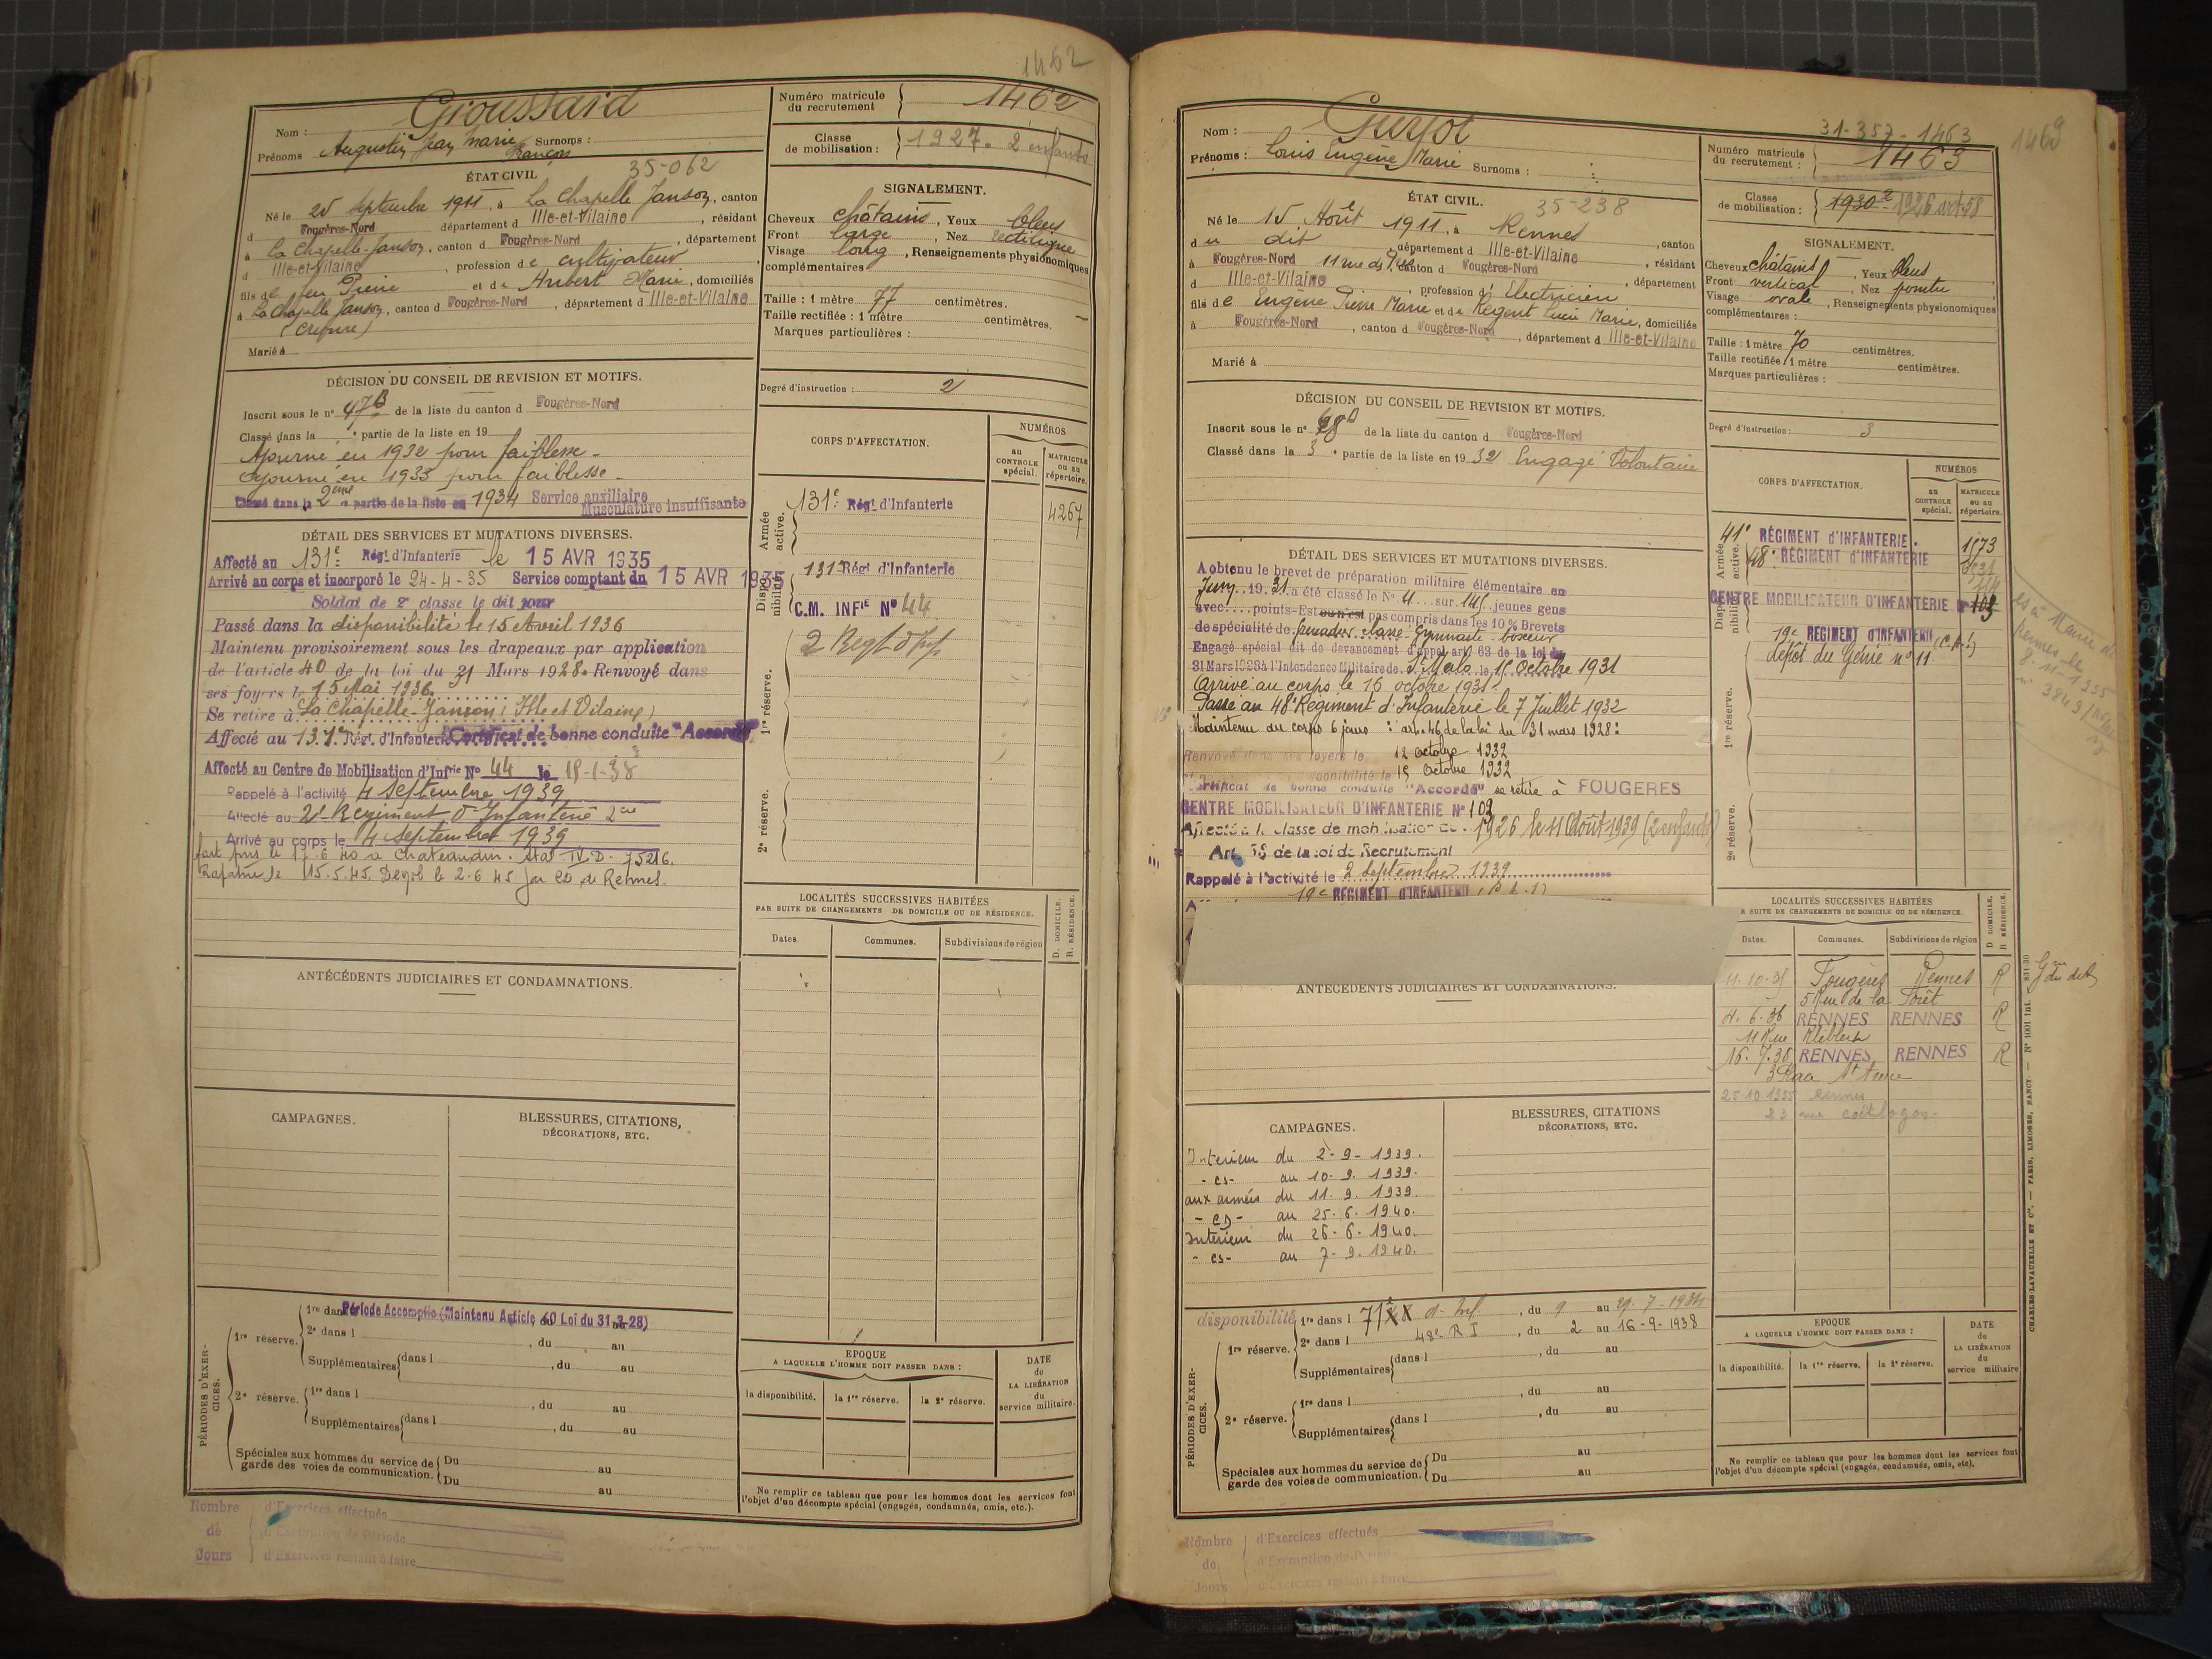 1462
Nom : Groussard
Prénoms Augustin Jean Marie François Surnoms :
Numéro matricule du recrutement 1462
Classe de mobilisation : 1927. 2 enfants
ÉTAT CIVIL 35-062
Né le 25 Septembre 1911, à La Chapelle Janson, canton
d Fougères-Nord département d Ille-et-Vilaine, résidant
à La Chapelle-Janson, canton d Fougères-Nord, département
d Ille-et-Vilaine, profession de cultivateur
fils de feu Pierre et de Hubert Marie, domiciliés
à La Chapelle Janson, canton d Fougères-Nord, département d Ille-et-Vilaine
Marié à
SIGNALEMENT.
Cheveux châtains, Yeux bleus
Front large, Nez rectiligne
Visage long, Renseignements physionomiques
complémentaires
Taille : 1 mètre 77 centimètres.
Taille rectifiée : 1 mètre centimètres.
Marques particulières :
Degré d'instruction : 2
DÉCISION DU CONSEIL DE REVISION ET MOTIFS.
Inscrit sous le n° 47B de la liste du canton d Fougères-Nord
Classé dans la e partie de la liste en 19
Ajourné en 1932 pour faiblesse -
Ajourné en 1933 pour faiblesse -
Classé dans la 2eme partie de la liste en 1934 Service auxiliaire
Musculature insuffisante
DÉTAIL DES SERVICES ET MUTATIONS DIVERSES.
Affecté au 131e Régt d'Infanterie le 15 AVR 1935
Arrivé au corps et incorporé le 24-4-35 Service comptant du 15 AVR 1935
Soldat de 2e classe le dit jour
Passé dans la disponibilité le 15 Avril 1936
Maintenu provisoirement sous les drapeaux par application
de l'article 40 de la loi du 31 Mars 1928. Renvoyé dans
ses foyers le 15 Mai 1936.
Se retire à La Chapelle-Janson (Ille et Vilaine)
Affecté au 131e Rég. d'Infanterie Certificat de bonne conduite "Accordé"
Affecté au Centre de Mobilisation d'Infrie N° 44 le 15-1-38
Rappelé à l'activité 4 Septembre 1939
Affecté au 2e Régiment d'Infanterie
Arrivé au corps le 4 Septembre 1939
fait pris le 17.6.40 à Chateaudun. Stal IV.D. 75216.
Rapatrié le 15.5.45. Démob le 2.6.45 par CD de Rennes.
CORPS D'AFFECTATION.
NUMÉROS
au CONTROLE spécial.
MATRICULE ou au répertoire.
Armée active.
131e Régt d'Infanterie 4267
Disponibilité.
131e Régt d'Infanterie
C.M. INFie N° 44
1re réserve.
2 Regt d'Inf.
2e réserve.
LOCALITÉS SUCCESSIVES HABITÉES
PAR SUITE DE CHANGEMENTS DE DOMICILE OU DE RÉSIDENCE.
Dates Communes. Subdivisions de région D. DOMICILE. R. RÉSIDENCE.
ANTÉCÉDENTS JUDICIAIRES ET CONDAMNATIONS.
CAMPAGNES.
BLESSURES, CITATIONS,
DÉCORATIONS, ETC.
PÉRIODES D'EXERCICES.
1re réserve. 1re dans Période Accomplie (Maintenu Article 40 Loi du 31-3-28)
2e dans l , du au
Supplémentaires dans l , du au
2e réserve. 1re dans l , du au
Supplémentaires dans l , du au
Spéciales aux hommes du service de garde des voies de communication. Du au
Du au
EPOQUE
A LAQUELLE L'HOMME DOIT PASSER DANS :
la disponibilité. la 1re réserve. la 2e réserve.
DATE de LA LIBÉRATION du service militaire.
Ne remplir ce tableau que pour les hommes dont les services font
l'objet d'un décompte spécial (engagés, condamnés, omis, etc.).
Nombre de Jours
d'Exercices effectués
d'Exemption de Période
d'Exercices restant à faire
31-357-1463
1463
Nom : Guyot
Prénoms : Louis Eugène Marie Surnoms :
Numéro matricule du recrutement : 1463
Classe de mobilisation : 1930 1926 art 58
ÉTAT CIVIL. 35-238
Né le 15 Août 1911, à Rennes, canton
du dit département d Ille-et-Vilaine, résidant
à Fougères-Nord 11 rue des canton d Fougères-Nord, département
d Ille-et-Vilaine, profession d' Electricien
fils de Eugène Pierre Marie et de Régent Lucie Marie, domiciliés
à Fougères-Nord, canton d Fougères-Nord, département d Ille-et-Vilaine
Marié à
SIGNALEMENT.
Cheveux châtains, Yeux bleus
Front vertical, Nez pointu
Visage ovale, Renseignements physionomiques
complémentaires :
Taille : 1 mètre 70 centimètres.
Taille rectifiée 1 mètre centimètres.
Marques particulières :
Degré d'instruction : 3
DÉCISION DU CONSEIL DE REVISION ET MOTIFS.
Inscrit sous le n° de la liste du canton d Fougères-Nord
Classé dans la 3e partie de la liste en 1932 Engagé Volontaire
DÉTAIL DES SERVICES ET MUTATIONS DIVERSES.
A obtenu le brevet de préparation militaire élémentaire en
Juin 1931 a été classé le N° 4 sur 145 jeunes gens
avec points-Est ou n'est pas compris dans les 10 % Brevets
de spécialité de grenadier classe Gymnaste boxeur
Engagé spécial dit de devancement d'appel art 63 de la loi du
31 Mars 1928 à l'Intendance Militaire de St Malo le 15 Octobre 1931
Arrivé au corps le 16 octobre 1931.
Passé au 48e Régiment d'Infanterie le 7 Juillet 1932
Maintenu au corps 6 jours : art. 46 de la loi du 31 mars 1928 :
Renvoyé dans ses foyers le 12 octobre 1932
disponibilité le 15 octobre 1932
Certificat de bonne conduite "Accordé" se retire à FOUGERES
CENTRE MOBILISATEUR D'INFANTERIE N° 102
Affecté à la classe de mobilisation de 1926 le 11 Août 1939 (2 enfants)
Art. 58 de la loi de Recrutement
Rappelé à l'activité le 2 septembre 1939
19e REGIMENT D'INFANTERIE
CORPS D'AFFECTATION.
NUMÉROS
au CONTROLE spécial.
MATRICULE ou au répertoire.
Armée active.
41e RÉGIMENT d'INFANTERIE. 1173
48e RÉGIMENT d'INFANTERIE
Disponibilité.
CENTRE MOBILISATEUR D'INFANTERIE N° 102
19e REGIMENT D'INFANTERIE
dépôt du Génie n° 11
1re réserve.
2e réserve.
Rennes le
8-11-1955
LOCALITÉS SUCCESSIVES HABITÉES
PAR SUITE DE CHANGEMENTS DE DOMICILE OU DE RÉSIDENCE.
Dates. Communes. Subdivisions de région D DOMICILE. R RÉSIDENCE.
Fougères Rennes R
5 Rue de la Forêt
4. 6. 36 RENNES RENNES R
11 Rue Kléber
16. 7. 38 RENNES RENNES R
3 Place St Anne
25.10.1955 Rennes
23 rue coëtlogon.
ANTÉCÉDENTS JUDICIAIRES ET CONDAMNATIONS.
CAMPAGNES.
Intérieur du 2-9-1939.
-es- au 10. 9. 1939.
aux armées du 11. 9. 1939.
-es- au 25. 6. 1940.
Intérieur du 26-6-1940.
-es- au 7-9-1940.
BLESSURES, CITATIONS
DÉCORATIONS, ETC.
PÉRIODES D'EXERCICES.
disponibilité 1re dans l 71e d'Inf., du 9 au 29-7-1934
1re réserve. 2e dans l 48e R I, du 2 au 16-9-1938
Supplémentaires dans l , du au
2e réserve. 1re dans l , du au
Supplémentaires dans l , du au
Spéciales aux hommes du service de garde des voies de communication. Du au
Du au
EPOQUE
A LAQUELLE L'HOMME DOIT PASSER DANS :
la disponibilité. la 1re réserve. la 2e réserve.
DATE de LA LIBÉRATION du service militaire
Ne remplir ce tableau que pour les hommes dont les services font
l'objet d'un décompte spécial (engagés, condamnés, omis, etc).
CHARLES-LAVAUZELLE ET Cie. — PARIS, LIMOGES, NANCY. — N° 1001 int. — 831-30
Nombre de Jours
d'Exercices effectués
d'Exemption de Période
d'Exercices restant à faire